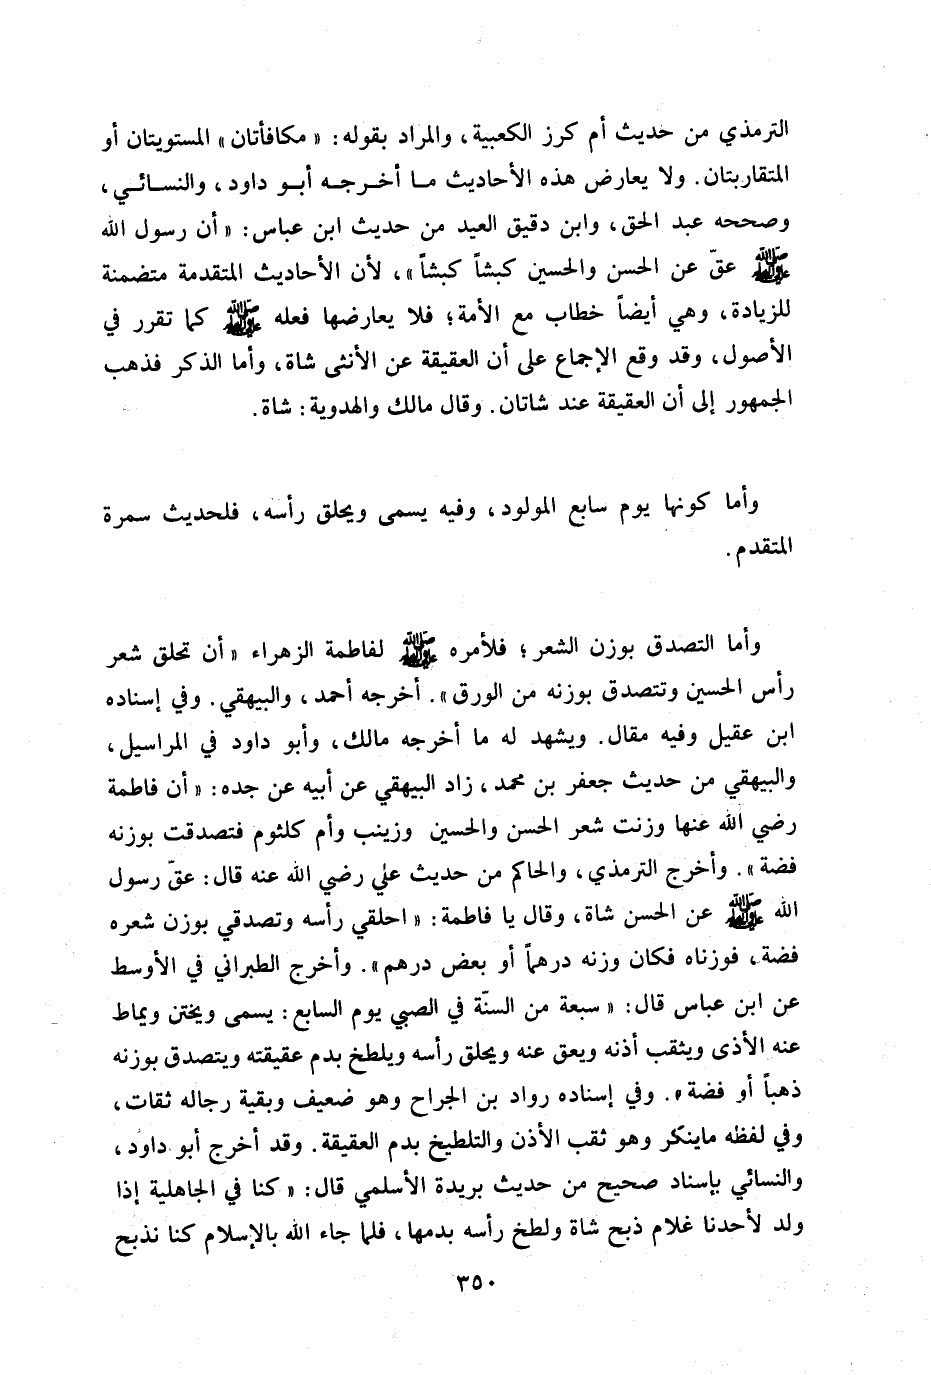 الترمذي من حديث أم كرز الكعبية، والمراد بقوله: «مكافأتان» المستويتان أو
المتقاربتان. ولا يعارض هذه الأحاديث ما أخرجه أبو داود، والنسائي،
وصححه عبد الحق، وابن دقيق العيد من حديث ابن عباس: «أن رسول الله
ﷺ عقّ عن الحسن والحسين كبشاً كبشاً»، لأن الأحاديث المتقدمة متضمنة
للزيادة، وهي أيضاً خطاب مع الأمة؛ فلا يعارضها فعله ﷺ كما تقرر في
الأصول، وقد وقع الإجماع على أن العقيقة عن الأنثى شاة، وأما الذكر فذهب
الجمهور إلى أن العقيقة عند شاتان. وقال مالك والهدوية: شاة.
وأما كونها يوم سابع المولود، وفيه يسمى ويحلق رأسه، فلحديث سمرة
المتقدم.
وأما التصدق بوزن الشعر؛ فلأمره ﷺ لفاطمة الزهراء «أن تحلق شعر
رأس الحسين وتتصدق بوزنه من الورق». أخرجه أحمد، والبيهقي. وفي إسناده
ابن عقيل وفيه مقال. ويشهد له ما أخرجه مالك، وأبو داود في المراسيل،
والبيهقي من حديث جعفر بن محمد، زاد البيهقي عن أبيه عن جده: «أن فاطمة
رضي الله عنها وزنت شعر الحسن والحسين وزينب وأم كلثوم فتصدقت بوزنه
فضة». وأخرج الترمذي، والحاكم من حديث علي رضي الله عنه قال: عقّ رسول
الله ﷺ عن الحسن شاة، وقال يا فاطمة: «احلقي رأسه وتصدقي بوزن شعره
فضة، فوزناه فكان وزنه درهماً أو بعض درهم». وأخرج الطبراني في الأوسط
عن ابن عباس قال: «سبعة من السنّة في الصبي يوم السابع: يسمى ويختن ويماط
عنه الأذى ويثقب أذنه ويعق عنه ويحلق رأسه ويلطخ بدم عقيقته ويتصدق بوزنه
ذهباً أو فضة». وفي إسناده رواد بن الجراح وهو ضعيف وبقية رجاله ثقات،
وفي لفظه ماينكر وهو ثقب الأذن والتلطيخ بدم العقيقة. وقد أخرج أبو داود،
والنسائي بإسناد صحيح من حديث بريدة الأسلمي قال: «كنا في الجاهلية إذا
ولد لأحدنا غلام ذبح شاة ولطخ رأسه بدمها، فلما جاء الله بالإسلام كنا نذبح
٣٥٠